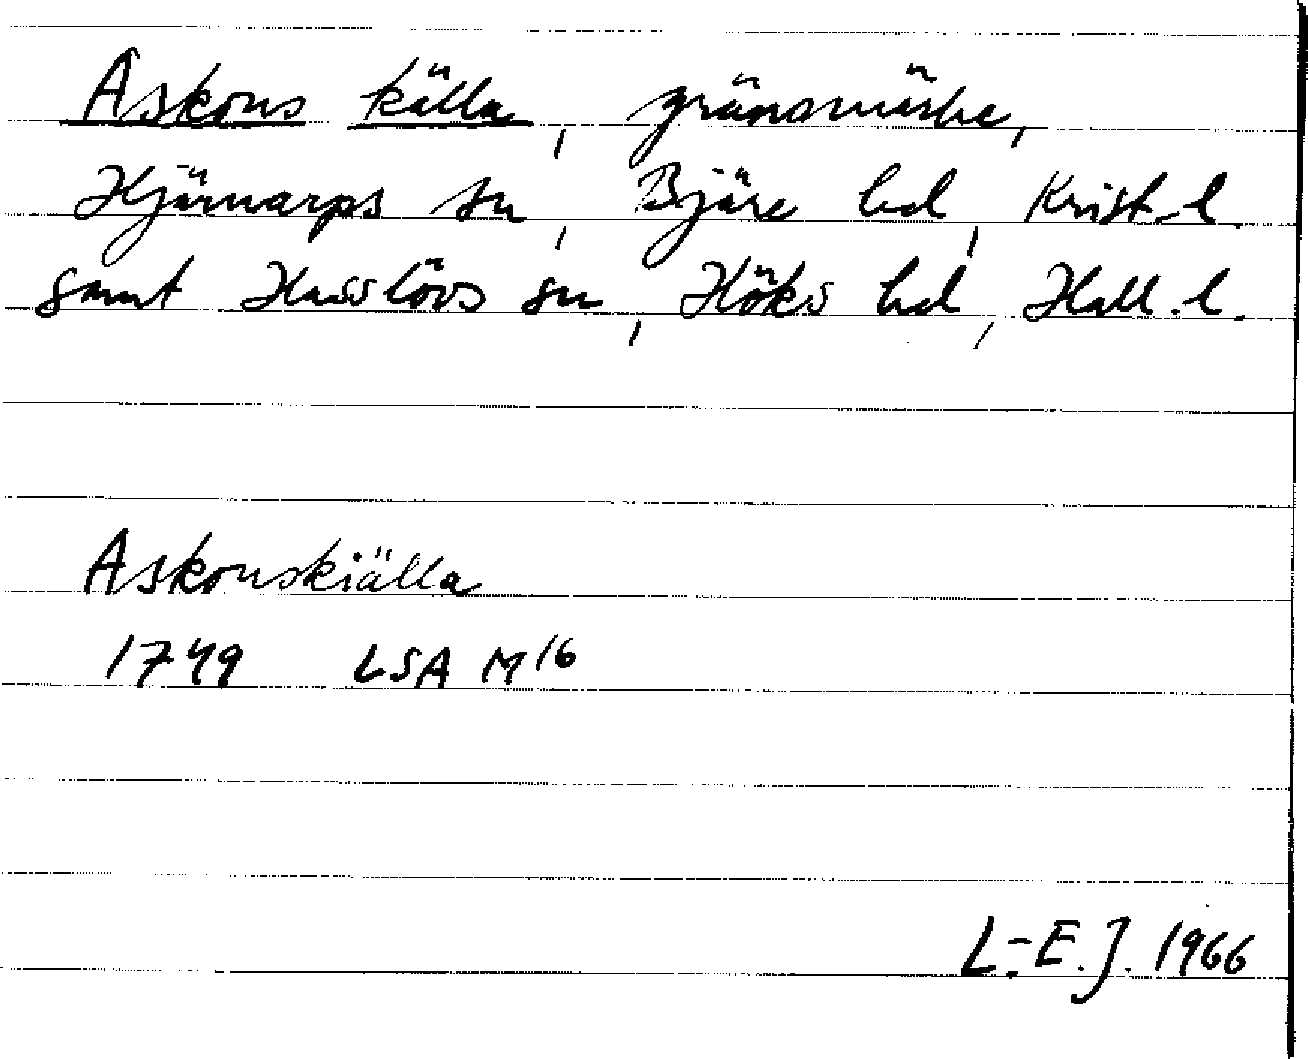 Askons källa, gränsmärke,
Hjärnarps sn, Bjäre hd, Krist.l.
samt Hasslövs sn, Höks hd, Hall.l.
Askonskiälla
1749 LSA M16
L-E.J. 1966